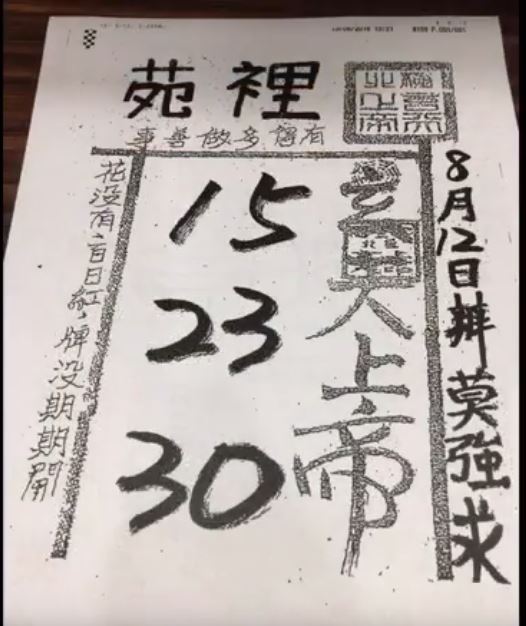 P.001/001
苑裡
有得多做善事
8月12日辦莫強求
玄天上帝
15
23
30
花没有百日紅，牌没期期開